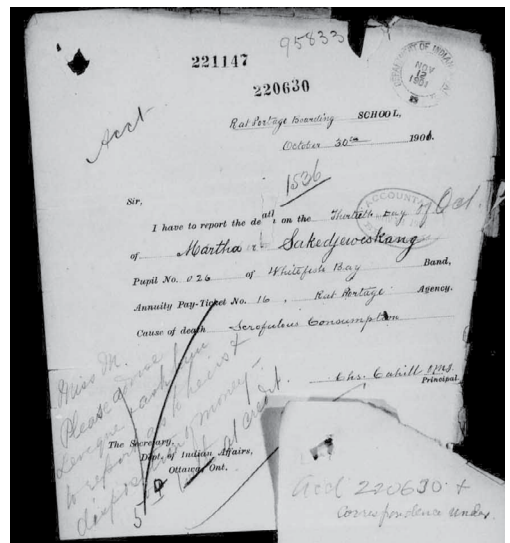 95833
221147
220630
DEPARTMENT OF INDIAN
NOV
12
1901
Acct
Rat Portage Boarding SCHOOL,
October 30th 1901.
1536
Sir,
I have to report the death on the Thirtieth Day of Oct.
ACCOUNTA
of Martha Sakedjewiskang
Pupil No. 026 of Whitefish Bay Band,
Annuity Pay-Ticket No. 16, Rat Portage Agency.
Cause of death Scrofulous Consumption
Chs. Cahill OMI
Principal.
Miss M.
Please
to report as to heirs &
disposition of money
at credit.
The Secretary,
Dept. of Indian Affairs,
Ottawa, Ont.
And 220630 &
correspondence under.